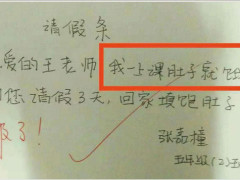 请假条
爱的王老师 我一上课肚子就饿
您请假3天，回家填饱肚子
了！
张嘉撞
五年级(2)